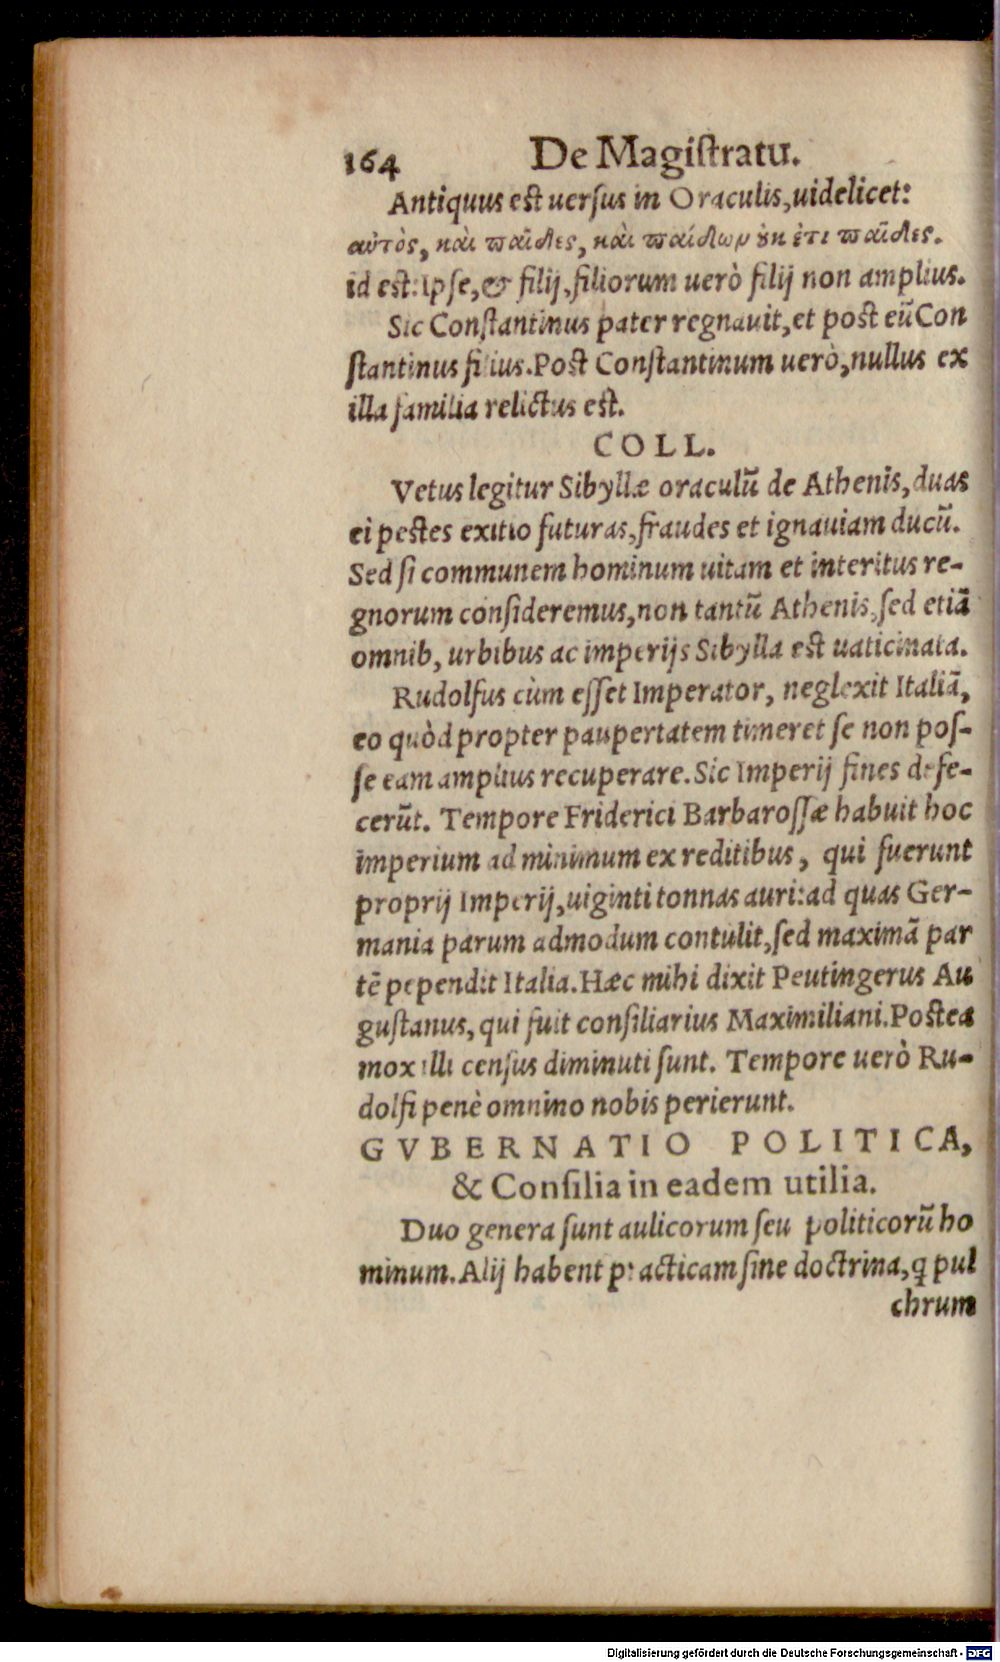 164 De Magiſtratu.
Antiquus eſt uerſus in Oraculis, uidelicet:
αὐτὸς, καὶ παῖδες, καὶ παίδων ȣ̓κ ἔτι παῖδες.
id eſt: Ipſe, & filij, filiorum uerò filij non amplius.
Sic Conſtantinus pater regnauit, et poſt eũ Con
ſtantinus filius. Poſt Conſtantinum uerò, nullus ex
illa familia relictus eſt.
COLL.
Vetus legitur Sibyllæ oraculũ de Athenis, duas
ei peſtes exitio futuras, fraudes et ignauiam ducũ.
Sed ſi communem hominum uitam et interitus re-
gnorum conſideremus, non tantũ Athenis, ſed etiã
omnib, urbibus ac imperijs Sibylla eſt uaticinata.
Rudolfus cùm eſſet Imperator, neglexit Italiã,
eo quòd propter paupertatem timeret ſe non poſ-
ſe eam amplius recuperare. Sic Imperij fines defe-
cerũt. Tempore Friderici Barbaroſſæ habuit hoc
imperium ad minimum ex reditibus, qui fuerunt
proprij Imperij, uiginti tonnas auri: ad quas Ger-
mania parum admodum contulit, ſed maximã par
tẽ pependit Italia. Hæc mihi dixit Peutingerus Au
guſtanus, qui fuit conſiliarius Maximiliani. Poſtea
mox illi cenſus diminuti ſunt. Tempore uerò Ru-
dolfi penè omnino nobis perierunt.
GVBERNATIO POLITICA,
& Conſilia in eadem utilia.
Duo genera ſunt aulicorum ſeu politicorũ ho
minum. Alij habent practicam ſine doctrina, q̃ pul
chrum
Digitalisierung gefördert durch die Deutsche Forschungsgemeinschaft - DFG